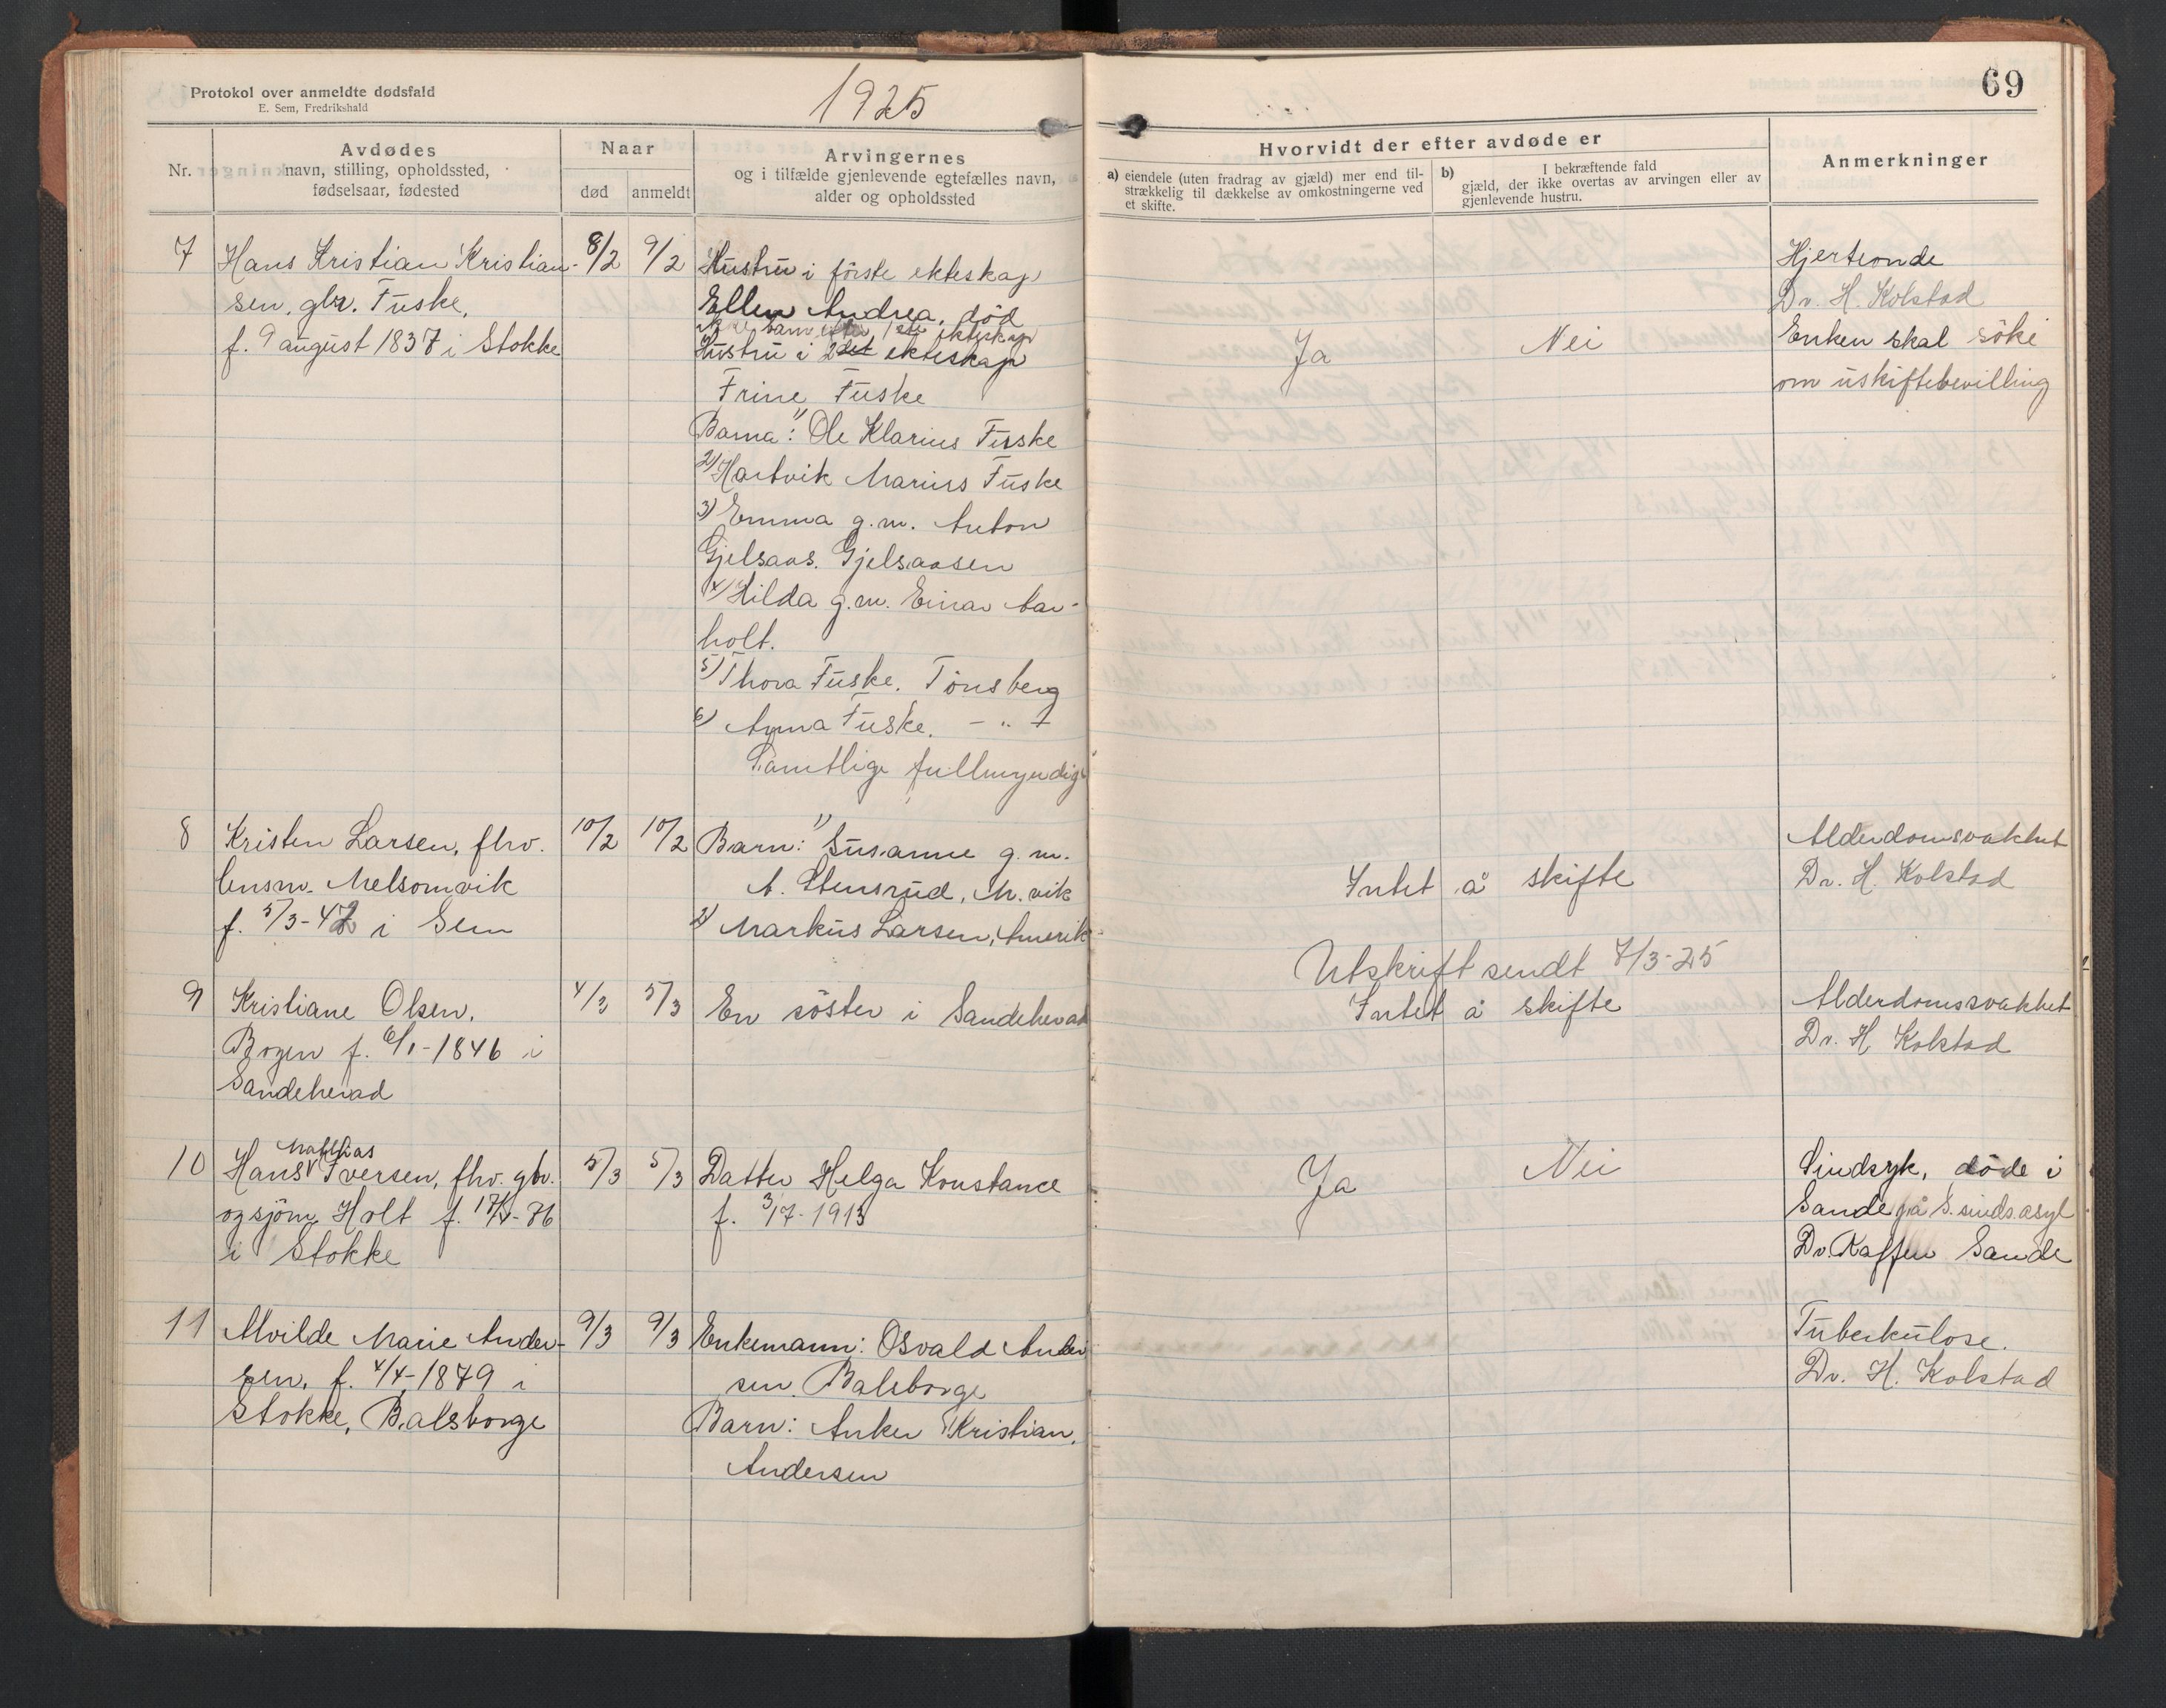 Protokol over anmeldte dødsfald
E. Sem, Fredrikshald
1925
69
Nr.
Avdødes
navn, stilling, opholdssted,
fødselsaar, fødested
Naar
død
anmeldt
Arvingernes
og i tilfælde gjenlevende egtefælles navn,
alder og opholdssted
Hvorvidt der efter avdøde er
a) eiendele (uten fradrag av gjæld) mer end til-
strækkelig til dækkelse av omkostningerne ved
et skifte.
b) I bekræftende fald
gjæld, der ikke overtas av arvingen eller av
gjenlevende hustru.
Anmerkninger
7
Hans Kristian Kristian-
sen, gbr. Fuske,
f. 9 august 1837 i Stokke
8/2
9/2
Hustru i første ekteskap
Ellen Andrea, død
barn 1ste ekteskap
Hustru i 2det ekteskap
Trine Fuske
Barna: 1) Ole Klarius Fuske
2) Hartvik Marius Fuske
3) Emma g.m. Anton
Gjelsaas. Gjelsaasen
4) Hilda g.m. Einar Aar-
holt.
5) Thora Fuske. Tönsberg
6) Anna Fuske. - " -
Samtlige fullmyndige
Ja
Nei
Hjerteonde
Dr. H. Kolstad
Enken skal söke
om uskiftebevilling
8
Kristen Larsen, fhv.
lensm. Melsomvik
f. 5/3-42 i Sem
10/2
10/2
Barn: 1) Susanne g.m.
A. Stensrud, M.vik
2) Markus Larsen, Amerik
Intet å skifte
Alderdomsvakhet
Dr. H. Kolstad
Utskrift sendt 7/3-25
9
Kristiane Olsen,
Bogen f. 6/1-1846 i
Sandeherad
4/3
5/3
En söster i Sandeherad
Intet å skifte
Alderdomssvakhet
Dr. H. Kolstad
10
Mathias
Hans Iversen, fhv. gbr.
og sjöm. Holt f. 17/4-76
i Stokke
5/3
5/3
Datter Helga Konstance
f. 3/7-1913
Ja
Nei
Sindsyk, döde i
Sande på S. sindsasyl
Dr. Kaffen Sande
11
Alvilde Marie Ander-
sen, f. 4/4-1879 i
Stokke, Balsborge
9/3
9/3
Enkemann: Osvald Ander
sen Balsborge
Barn: Anker Kristian
Andersen
Tuberkulose.
Dr. H. Kolstad